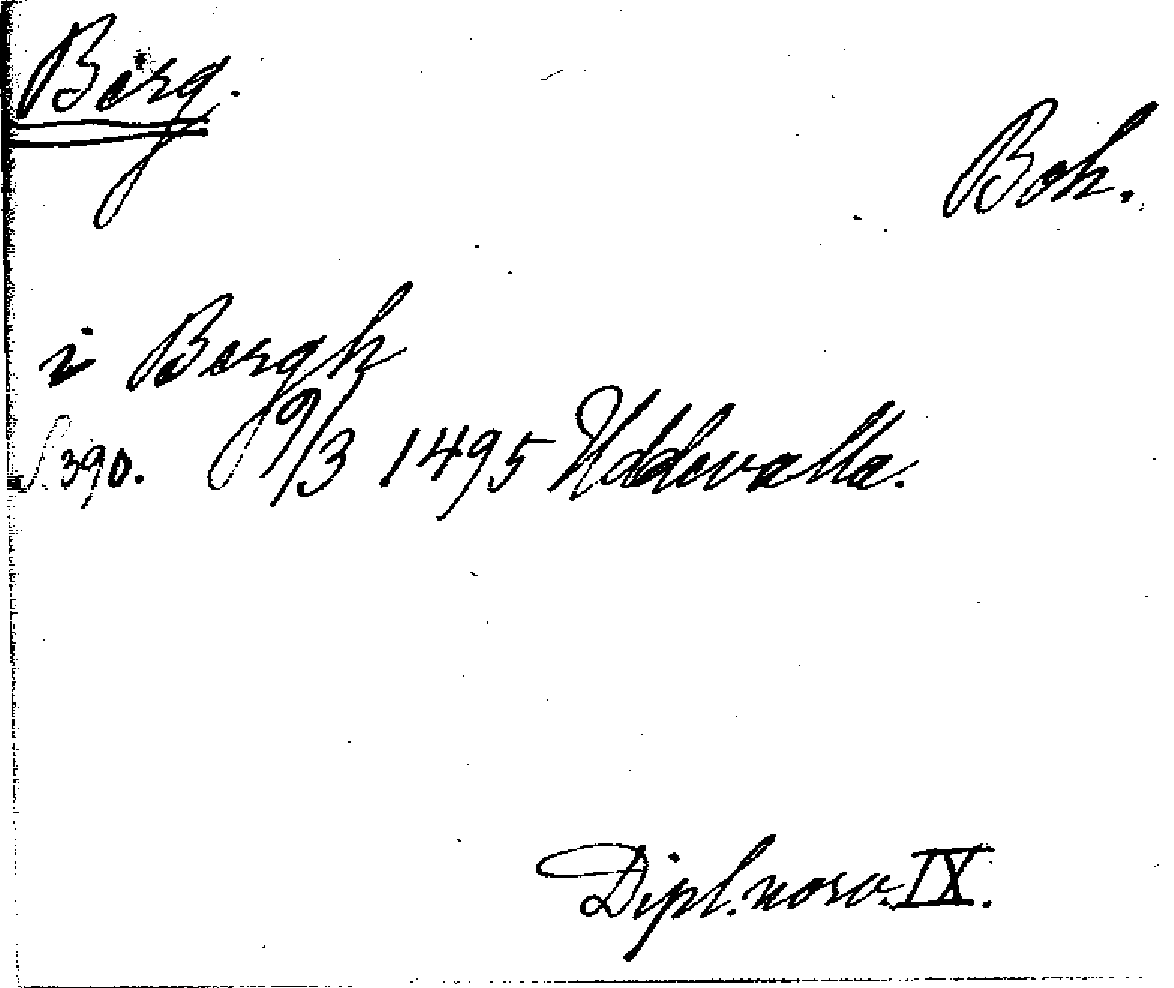 Berg.
Boh.
i Bergh
S. 390. 9/3 1495 Uddevalla.
Dipl. norv. IX.